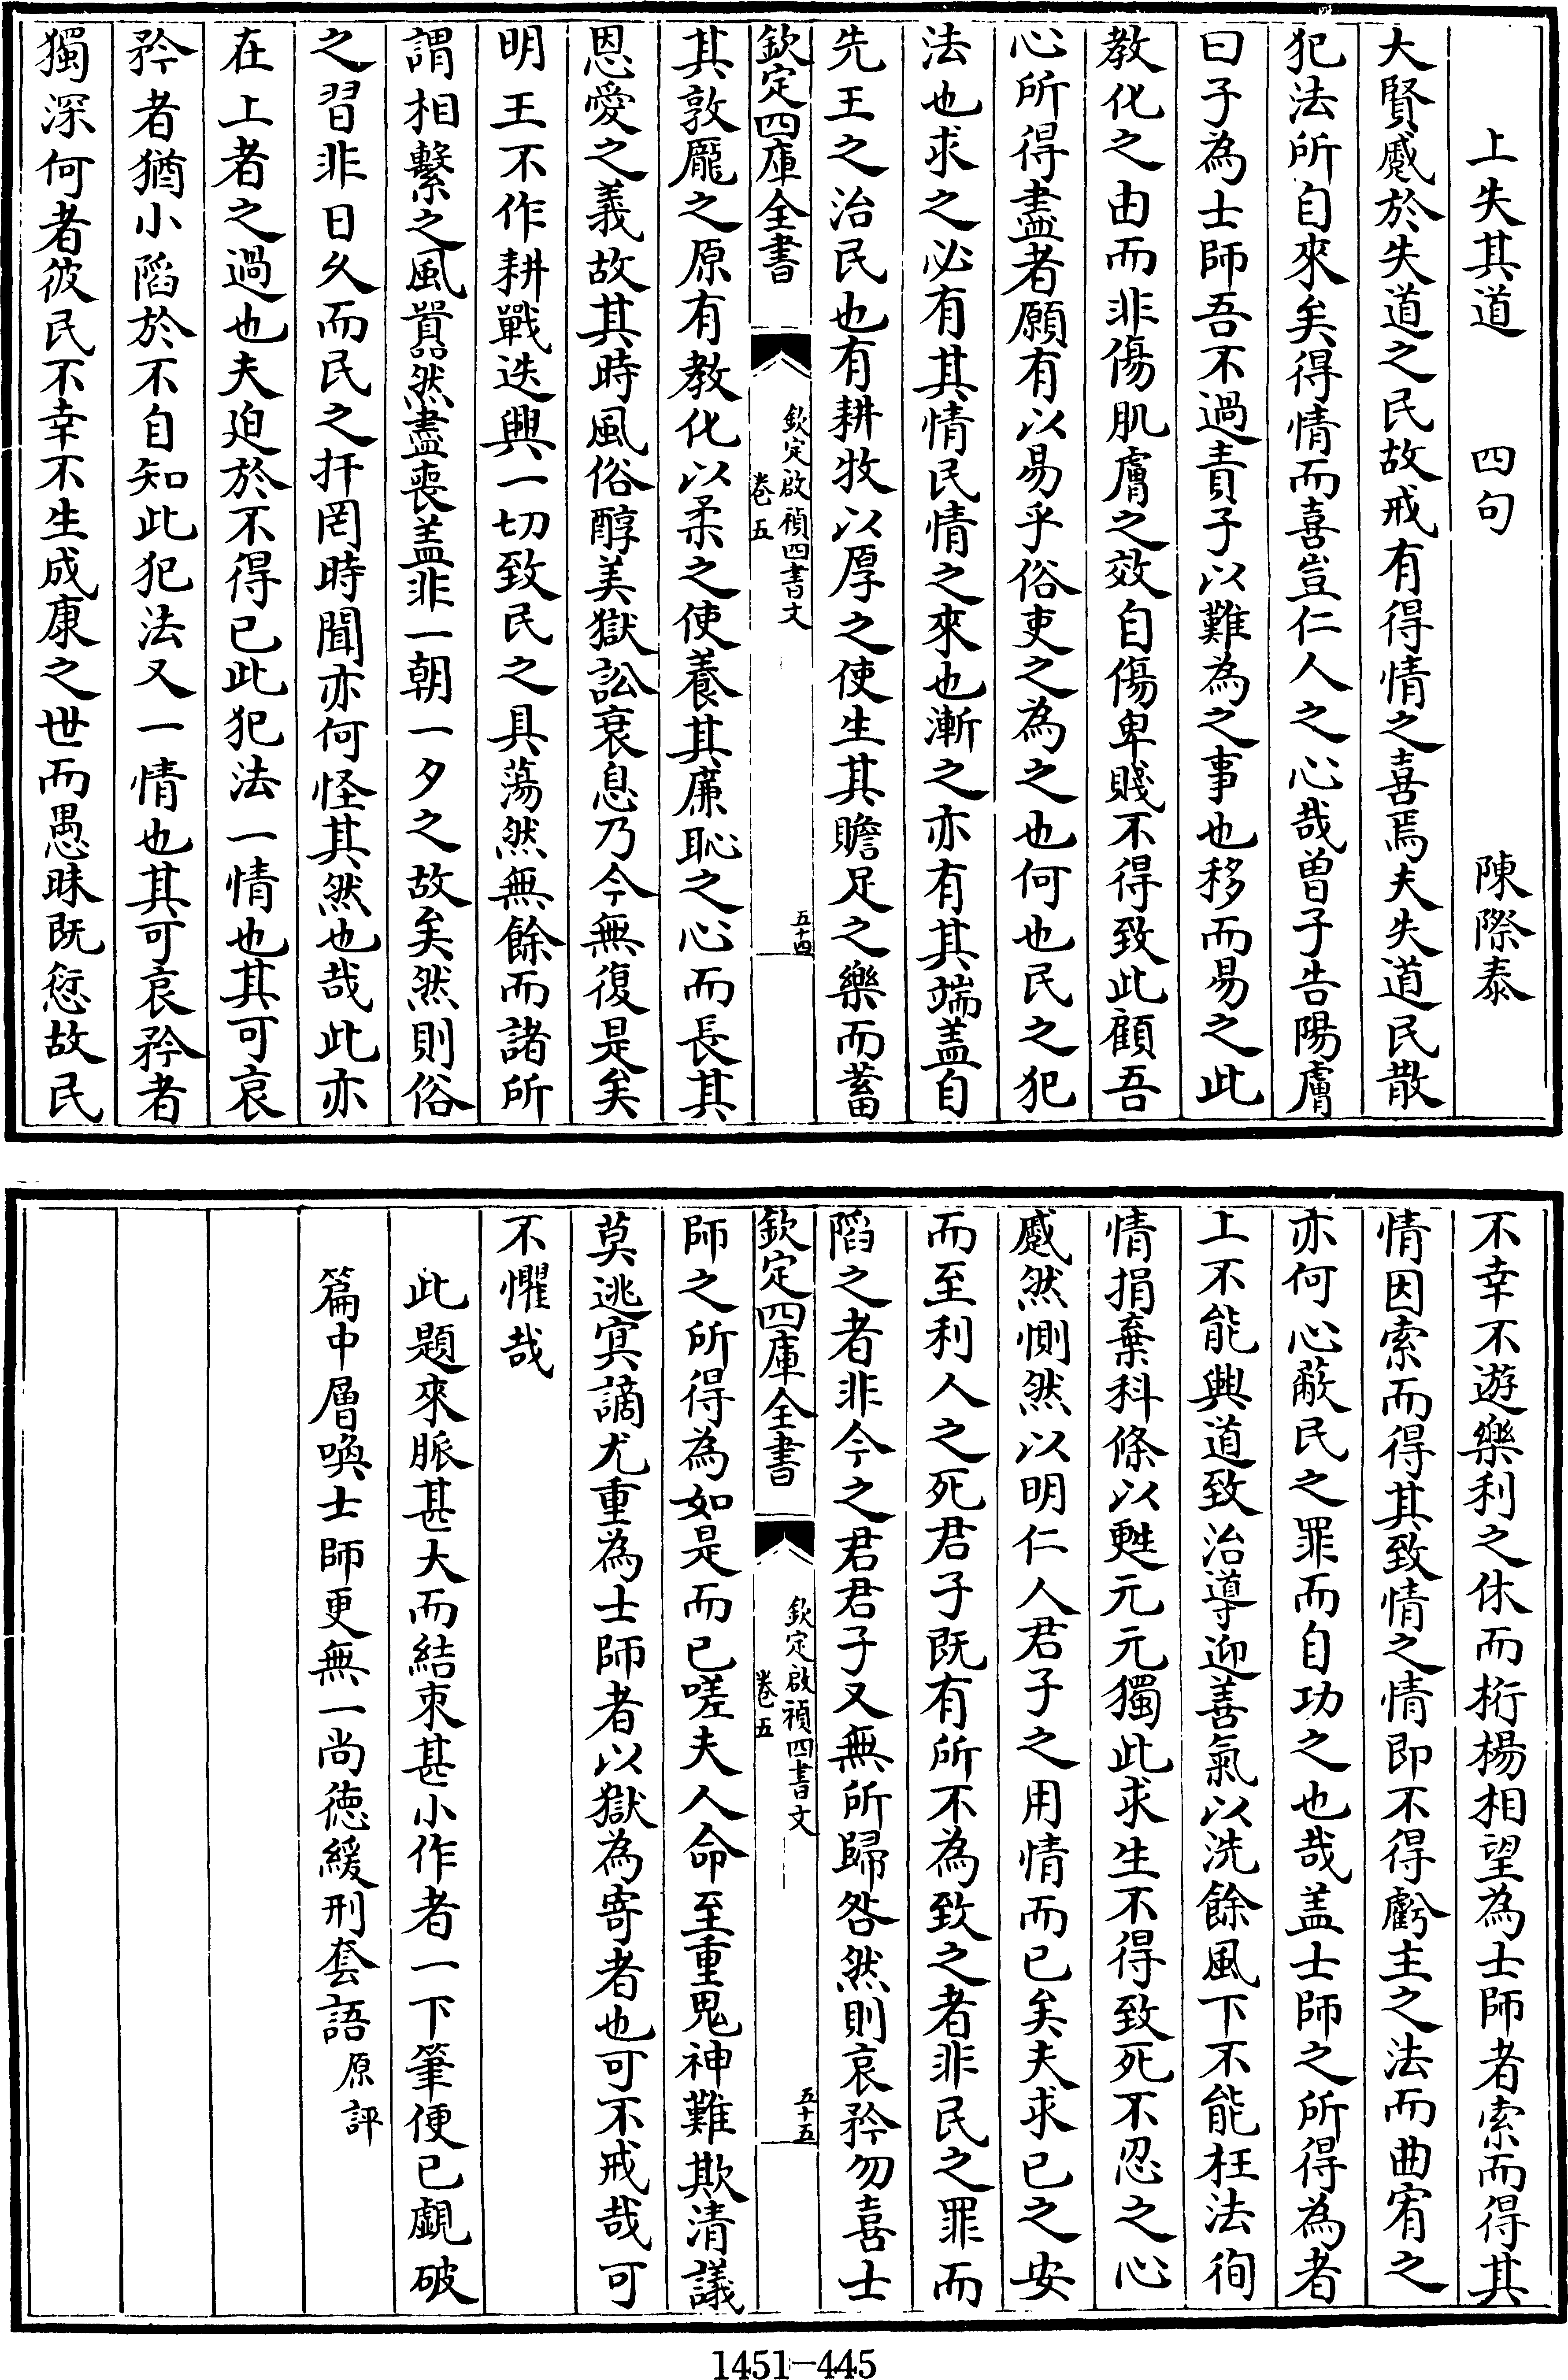 上失其道　四句　陳際泰
大賢慼於失道之民故戒有得情之喜焉夫失道民散
犯法所自來矣得情而喜豈仁人之心哉曽子告陽膚
曰子為士師吾不過責子以難為之事也移而易之此
教化之由而非傷肌膚之效自傷卑賤不得致此顧吾
心所得盡者願有以易乎俗吏之為之也何也民之犯
法也求之必有其情民情之來也漸之亦有其端盖自
先王之治民也有耕牧以厚之使生其贍足之樂而蓄
欽定四庫全書
欽定啟禎四書文
卷五
五十四
其敦龎之原有教化以柔之使養其廉恥之心而長其
恩愛之義故其時風俗醇美獄訟衰息乃今無復是矣
明王不作耕戰迭興一切致民之具蕩然無餘而諸所
謂相繫之風囂然盡喪盖非一朝一夕之故矣然則俗
之習非日久而民之扞罔時聞亦何怪其然也哉此亦
在上者之過也夫廹於不得已此犯法一情也其可哀
矜者猶小䧟於不自知此犯法又一情也其可哀矜者
獨深何者彼民不幸不生成康之世而愚昧既愆故民
不幸不遊樂利之休而桁楊相望為士師者索而得其
情因索而得其致情之情即不得虧主之法而曲宥之
亦何心蔽民之罪而自功之也哉盖士師之所得為者
上不能興道致治導迎善氣以洗餘風下不能枉法徇
情捐棄科條以甦元元獨此求生不得致死不忍之心
慼然惻然以明仁人君子之用情而已矣夫求已之安
而至利人之死君子既有所不為致之者非民之罪而
䧟之者非今之君君子又無所歸咎然則哀矜勿喜士
欽定四庫全書
欽定啟禎四書文
卷五
五十五
師之所得為如是而已嗟夫人命至重鬼神難欺清議
莫逃㝠謫尤重為士師者以獄為寄者也可不戒哉可
不懼哉
此題來脈甚大而結朿甚小作者一下筆便已覷破
篇中層喚士師更無一尚徳緩刑套語原評
1451-445